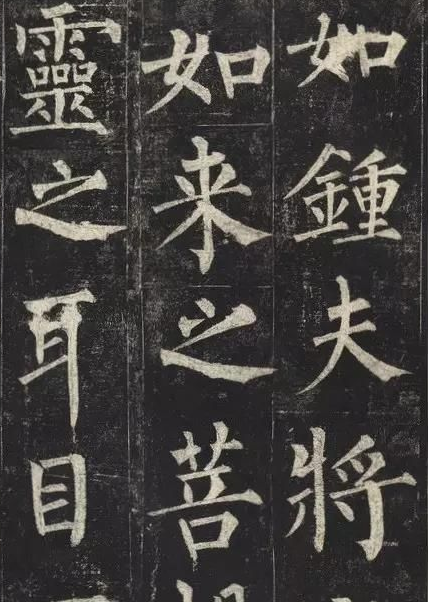 如鍾夫將
如来之菩
靈之耳目